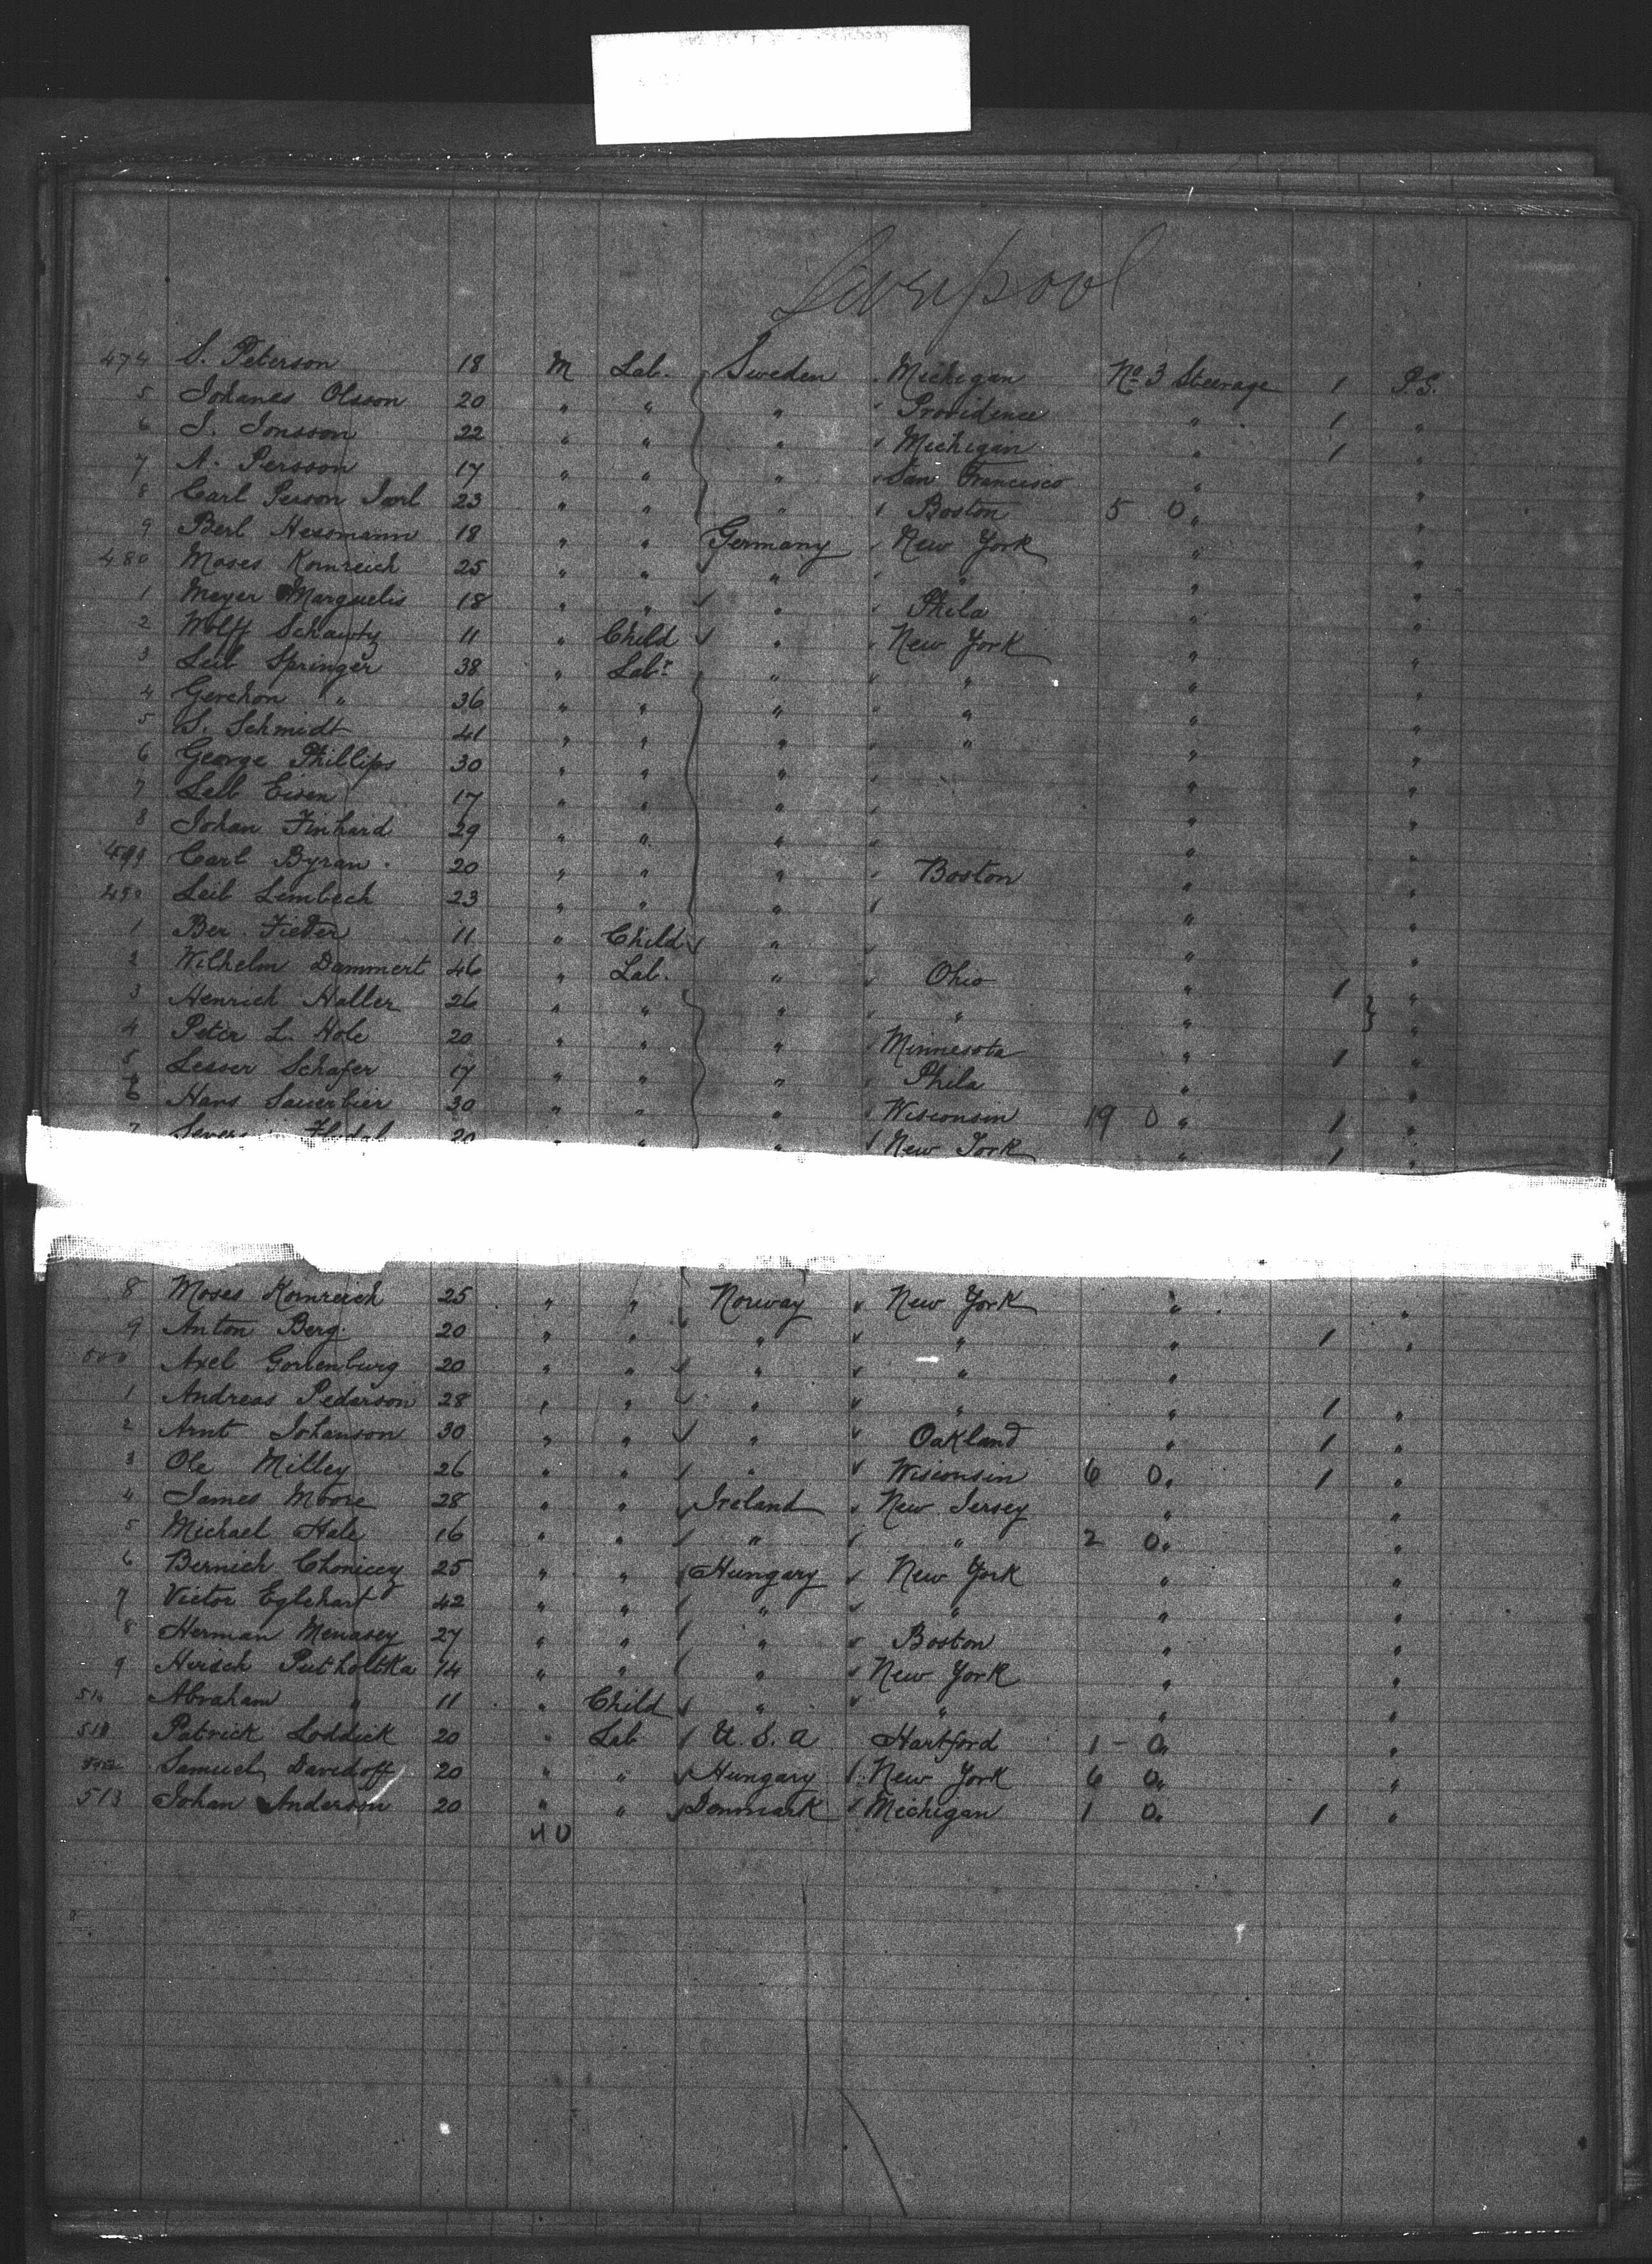 Liverpool
474 S. Peterson 18 M Lab. Sweden Michigan No 3 Steerage 1 P.S.
5 Johanes Olsson 20 " " " Providence " 1 "
6 J. Jonsson 22 " " " Michigan " 1 "
7 A. Persson 17 " " " San Francisco " "
8 Carl Person 23 " " " Boston 5 0 " "
9 Berl Hessmann 18 " " Germany New York " "
480 Moses Kornreich 25 " " " " " "
1 Meyer Marguelis 18 " " " Phila " "
2 Wolff Schawty 11 " Child " New York " "
3 Leib Springer 38 " Labr " " " "
4 Gerchon " 36 " " " " " "
5 S. Schmidt 41 " " " " " "
6 George Phillips 30 " " " " "
7 Leib Eisen 17 " " " " "
8 Johan Finhard 29 " " " " "
Carl Byran 20 " " " Boston " "
490 Leib Lembech 23 " " " " "
1 Ber. 11 " Child " " "
2 Wilhelm Dammert 46 " Lab. " Ohio " 1 "
3 Henrich Haller 26 " " " " " "
4 Peter L. Hole 20 " " " Minnesota " 1 "
5 Lesser Schafer 17 " " " Phila " "
6 Hans Sauerbier 30 " " " Wisconsin 19 0 " 1 "
7 20 " " " New York " 1 "
8 Moses Kornreich 25 " " Norway New York " "
9 Anton Berg 20 " " " " " 1 "
500 Axel Gorlenburg 20 " " " " "
1 Andreas Pederson 28 " " " " " 1 "
2 Arnt Johanson 30 " " " Oakland " 1 "
3 Ole Milley 26 " " " Wisconsin 6 0 " 1 "
4 James Moore 28 " " Ireland New Jersey " "
5 Michael Hale 16 " " " " 2 0 " "
6 Bernich Chonicey 25 " " Hungary New York " "
7 Victor Eglehart 42 " " " " " "
8 Herman Menasey 27 " " " Boston " "
9 Hersch Putholtka 14 " " " New York " "
510 Abraham " 11 " Child " " " "
511 Patrick Loddick 20 " Lab U.S.A Hartford 1 - 0 " "
512 Samuel Davidoff 20 " " Hungary New York 6 0 " "
513 Johan Anderson 20 " " Denmark Michigan 1 0 " 1 "
40